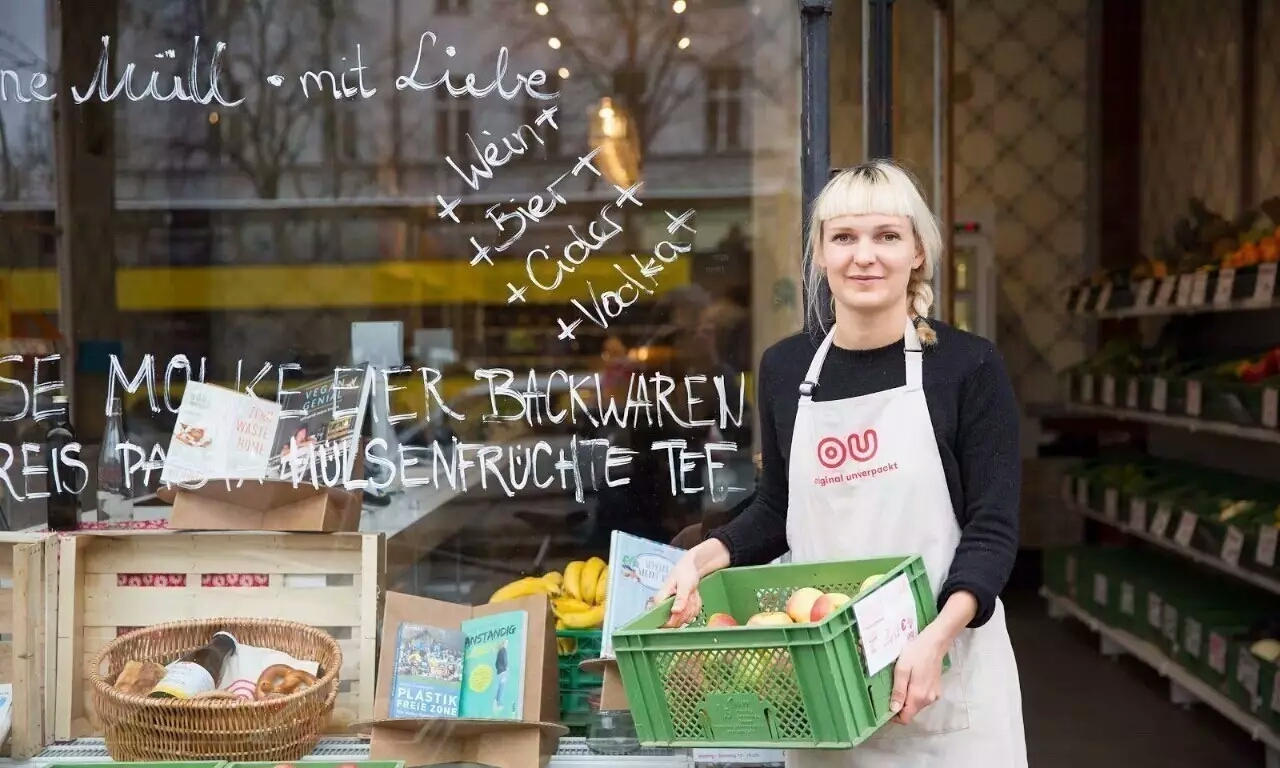 ne Müll • mit Liebe
+ Wein +
+ Bier +
+ Cider +
+ Vodka +
SE MOLKE EIER BACKWAREN
REIS PASTA HÜLSENFRÜCHTE TEE
ZERO WASTE HOME
VEGAN GENIAL
PLASTIK FREIE ZONE
ANSTÄNDIG
OU
original unverpackt